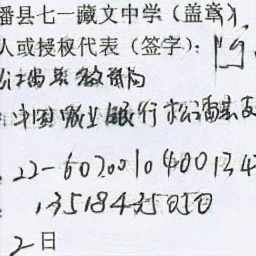 番县七一藏文中学（盖章）
人或授权代表（签字）：
中国农业银行松潘县支
22-6070010400134
13518435050
2日